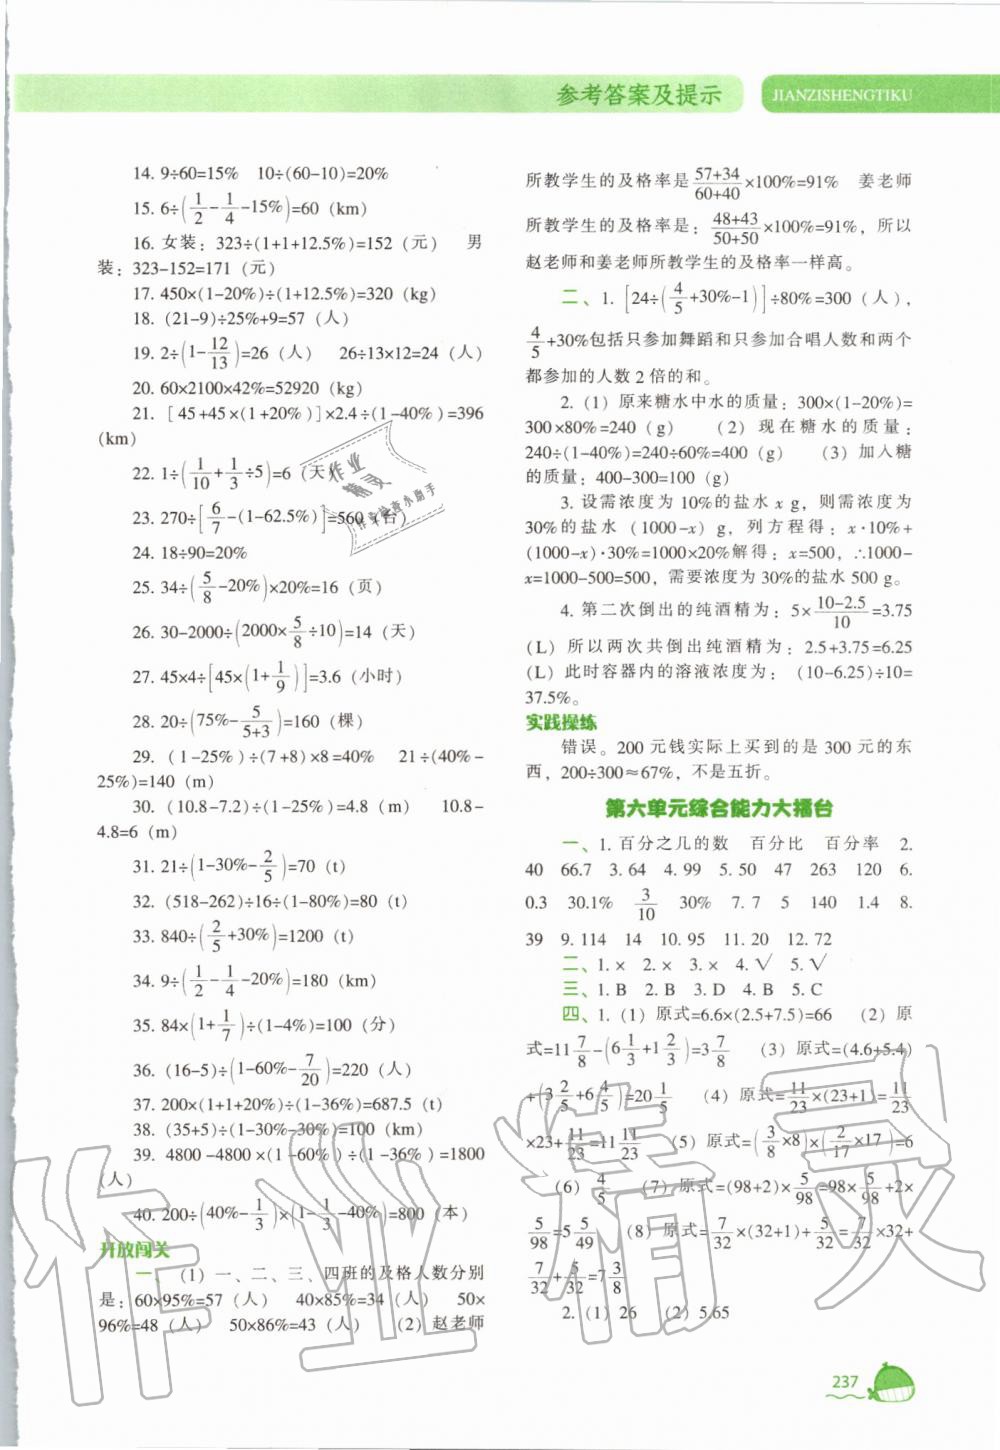 参考答案及提示
JIANZISHENGTIKU
14. 9÷60=15%　10÷(60-10)=20%
15. 6÷(1/2-1/4-15%)=60 (km)
16. 女装：323÷(1+1+12.5%)=152（元）　男
装：323-152=171（元）
17. 450×(1-20%)÷(1+12.5%)=320 (kg)
18. (21-9)÷25%+9=57（人）
19. 2÷(1-12/13)=26（人）　26÷13×12=24（人）
20. 60×2100×42%=52920 (kg)
21. [45+45×(1+20%)]×2.4÷(1-40%)=396
(km)
22. 1÷(1/10+1/3÷5)=6（天）
23. 270÷[6/7-(1-62.5%)]=560（台）
24. 18÷90=20%
25. 34÷(5/8-20%)×20%=16（页）
26. 30-2000÷(2000×5/8÷10)=14（天）
27. 45×4÷[45×(1+1/9)]=3.6（小时）
28. 20÷(75%-5/(5+3))=160（棵）
29. (1-25%)÷(7+8)×8=40%　21÷(40%-
25%)=140 (m)
30. (10.8-7.2)÷(1-25%)=4.8 (m)　10.8-
4.8=6 (m)
31. 21÷(1-30%-2/5)=70 (t)
32. (518-262)÷16÷(1-80%)=80 (t)
33. 840÷(2/5+30%)=1200 (t)
34. 9÷(1/2-1/4-20%)=180 (km)
35. 84×(1+1/7)÷(1-4%)=100（分）
36. (16-5)÷(1-60%-7/20)=220（人）
37. 200×(1+1+20%)÷(1-36%)=687.5 (t)
38. (35+5)÷(1-30%-30%)=100 (km)
39. 4800-4800×(1-60%)÷(1-36%)=1800
（人）
40. 200÷(40%-1/3)×(1-1/3-40%)=800（本）
开放闯关
一、（1）一、二、三、四班的及格人数分别
是：60×95%=57（人）　40×85%=34（人）　50×
96%=48（人）　50×86%=43（人）　（2）赵老师
所教学生的及格率是(57+34)/(60+40)×100%=91%　姜老师
所教学生的及格率是：(48+43)/(50+50)×100%=91%，所以
赵老师和姜老师所教学生的及格率一样高。
二、1. [24÷(4/5+30%-1)]÷80%=300（人），
4/5+30%包括只参加舞蹈和只参加合唱人数和两个
都参加的人数 2 倍的和。
2.（1）原来糖水中水的质量：300×(1-20%)=
300×80%=240（g）　（2）现在糖水的质量：
240÷(1-40%)=240÷60%=400（g）　（3）加入糖
的质量：400-300=100（g）
3. 设需浓度为 10%的盐水 x g，则需浓度为
30%的盐水（1000-x）g，列方程得：x·10%+
(1000-x)·30%=1000×20%解得：x=500，∴1000-
x=1000-500=500，需要浓度为 30%的盐水 500 g。
4. 第二次倒出的纯酒精为：5×(10-2.5)/10=3.75
(L) 所以两次共倒出纯酒精为：2.5+3.75=6.25
(L) 此时容器内的溶液浓度为：(10-6.25)÷10=
37.5%。
实践操练
错误。200 元钱实际上买到的是 300 元的东
西，200÷300≈67%，不是五折。
第六单元综合能力大擂台
一、1. 百分之几的数　百分比　百分率　2.
40　66.7　3. 64　4. 99　5. 50　47　263　120　6.
0.3　30.1%　3/10　30%　7. 7　5　140　1.4　8.
39　9. 114　14　10. 95　11. 20　12. 72
二、1. ×　2. ×　3. ×　4. √　5. √
三、1. B　2. B　3. D　4. B　5. C
四、1.（1）原式=6.6×(2.5+7.5)=66　（2）原
式=11 7/8-(6 1/3+1 2/3)=3 7/8　（3）原式=(4.6+5.4)
+(3 2/5+6 4/5)=20 1/5　（4）原式=11/23×(23+1)=11/23
×23+11/23=11 11/23　（5）原式=(3/8×8)×(2/17×17)=6
（6）4/5　（7）原式=(98+2)×5/98=98×5/98+2×
5/98=5 5/49　（8）原式=7/32×(32+1)+5/32=7/32×32+
7/32+5/32=7 3/8
2.（1）26　（2）5.65
237
作业
精灵
作业检查小助手
作业精灵